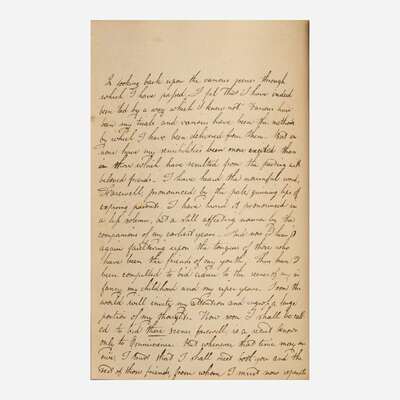 In looking back upon the various scenes through
which I have passed, I feel that I have indeed
been led by a way which I knew not. Various have
been my trials and various have been the methods
by which I have been delivered from them. But in
none have my sensibilities been more excited than
in those which have resulted from the parting with
beloved friends. I have heard the mournful word,
Farewell, pronounced by the pale quivering lips of
expiring parents. I have heard it pronounced in
a less solemn, but a still affecting manner by the
companions of my earliest years. And now I hear it
again faultering upon the tongues of those who
have been the friends of my youth. Thus have I
been compelled to bid adieu to the scenes of my in
fancy my childhood and my riper years. Soon the
world will invite my attention and engross a large
portion of my thoughts. How soon I shall be call
ed to bid these scenes farewell is a secret known
only to Omniscience. But whenever that time may ar
rive, I trust that I shall meet both you and the
rest of those friends from whom I must now separate